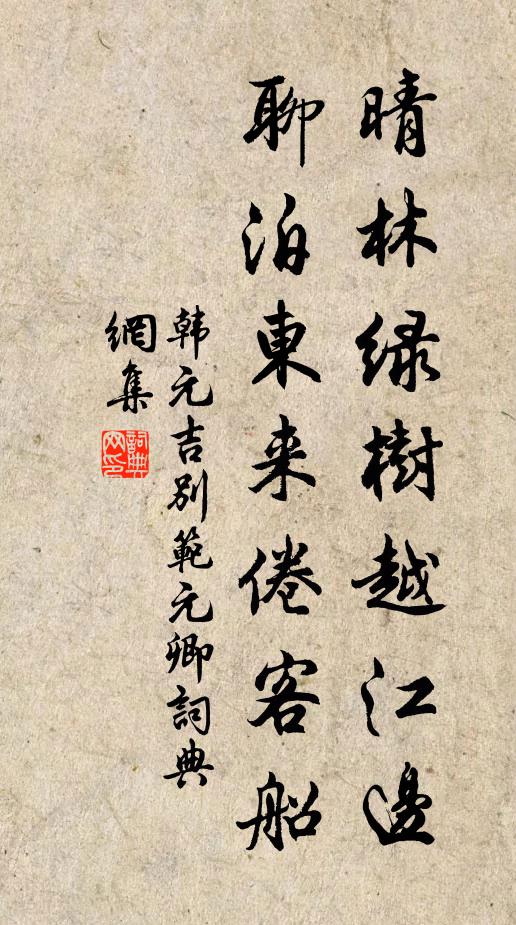 晴林绿樹越江邊
聊泊東来倦客船
韩元吉别範元卿詞典
網集
詞典網印